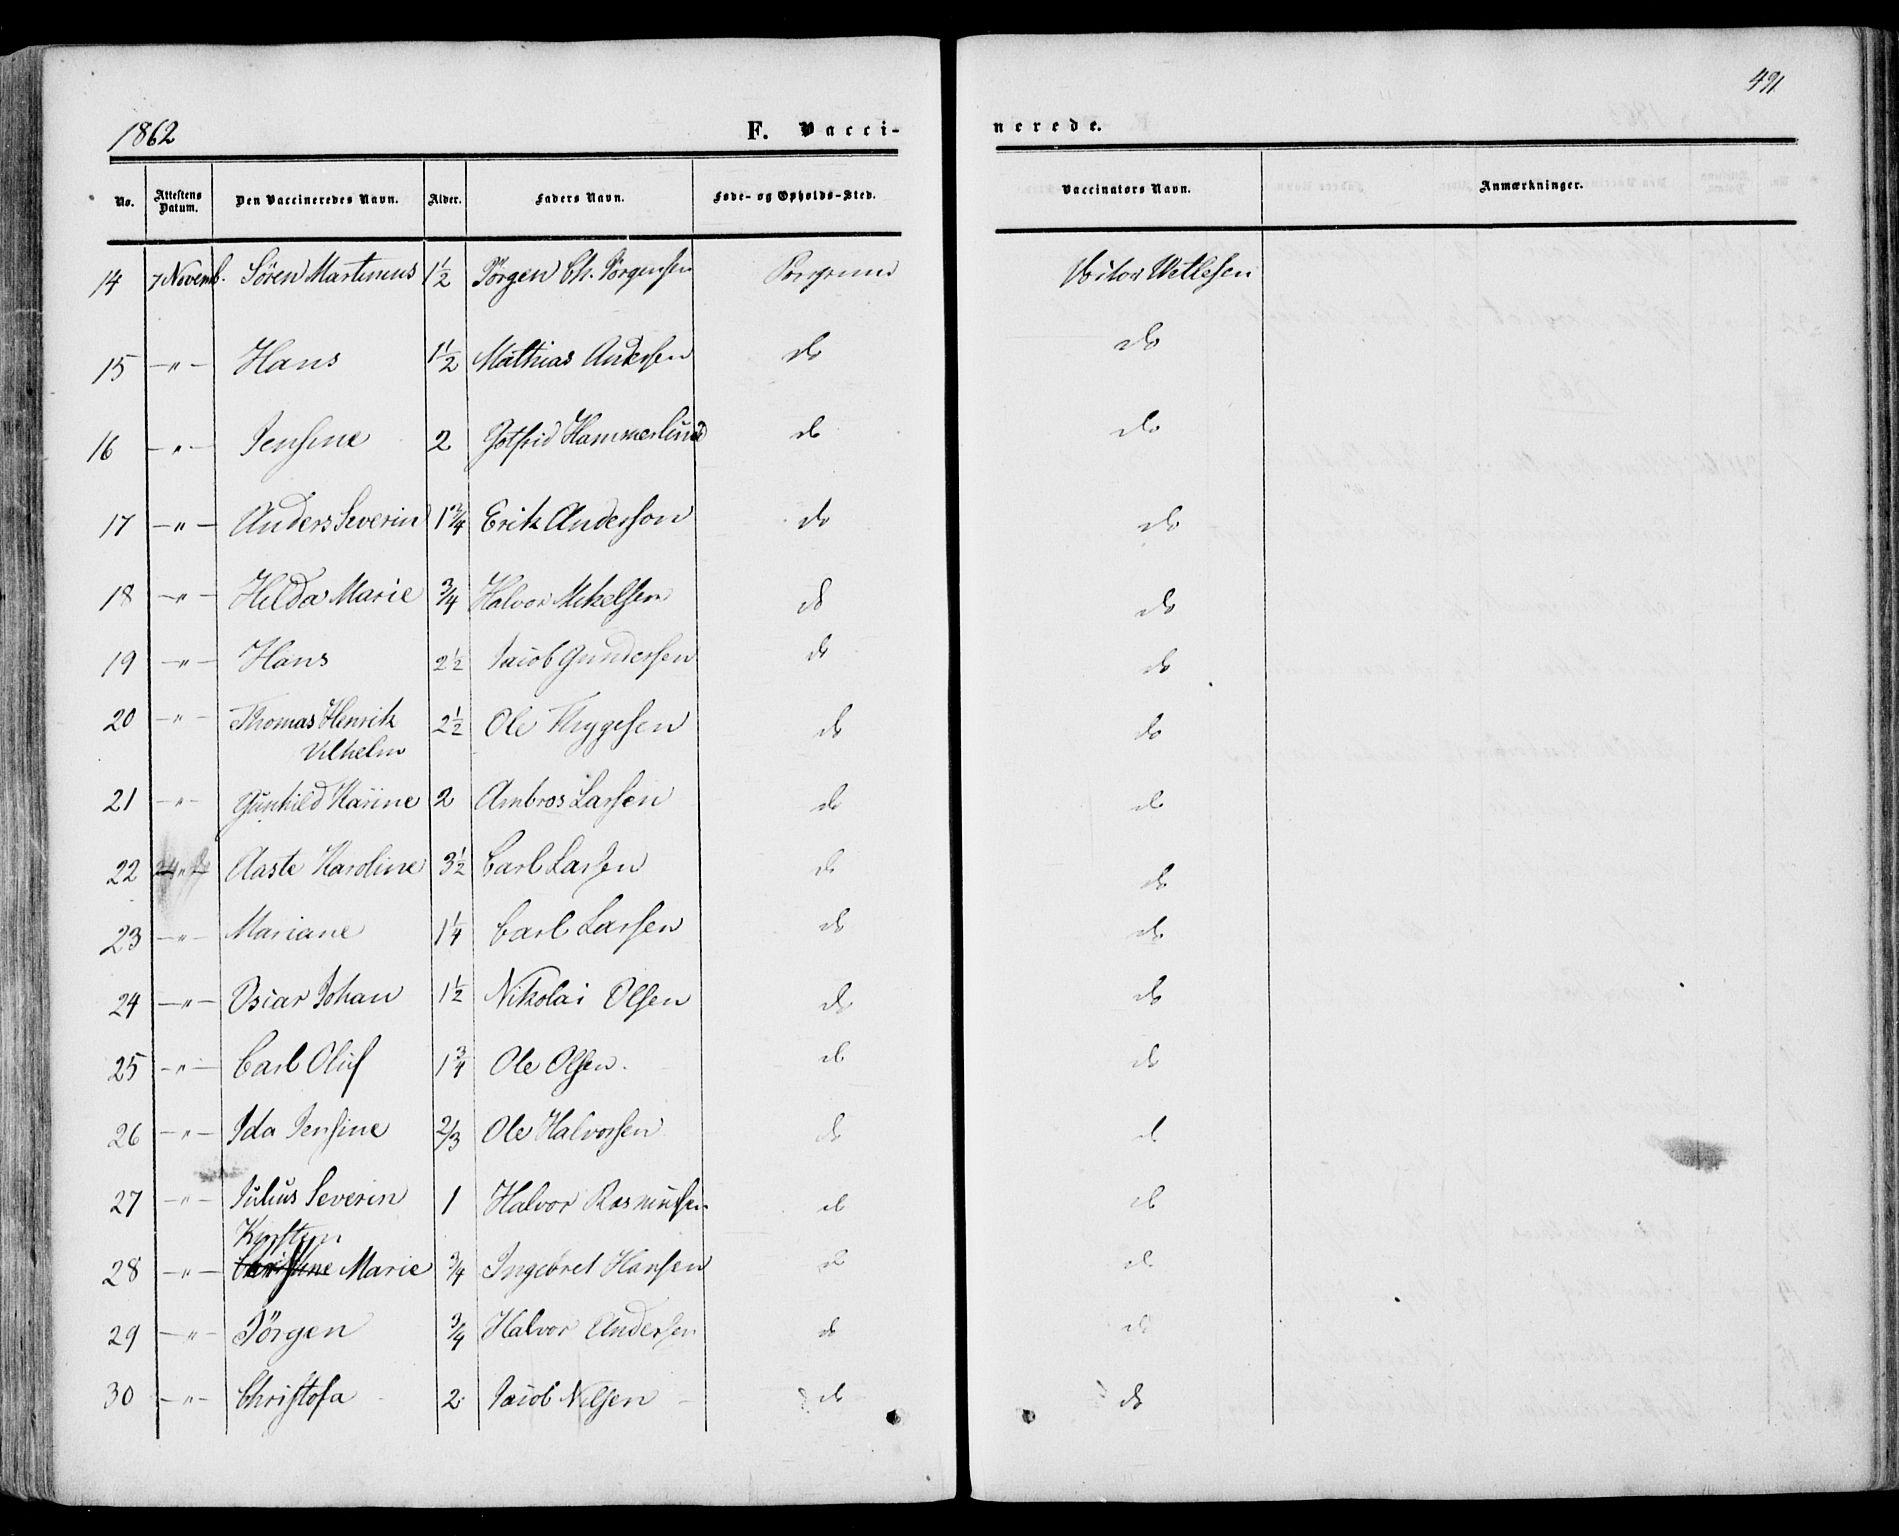 491
1862 F. Vacci- nerede.
No. Attestens Datum. Den Vaccineredes Navn. Alder. Faders Navn. Føde- og Opholds-Sted. Vaccinators Navn. Anmærkninger.
14 7 Novemb. Sören Martinius 1½ Jörgen Ch. Jörgensen Porsgrund Vitor Wetlesen
15 -"- Hans 1½ Mathias Andersen do do
16 -"- Jensine 2 Gotfrid Hammerlund do do
17 -"- Anders Severin 1¾ Erik Anderson do do
18 -"- Hilda Marie ¾ Halvor Mikelsen do do
19 -"- Hans 2½ Jacob Gundersen do do
20 -"- Thomas Henrik 2½ Ole Thygesen do do
Vilhelm
21 -"- Gunhild Karine 2 Ambros Larsen do do
22 -"- Aaste Karoline 3½ Carl Larsen do do
23 -"- Mariane 1¼ Carl Larsen do do
24 -"- Oscar Johan 1½ Nikolai Olsen do do
25 -"- Carl Oluf 1¾ Ole Olsen. do do
26 -"- Ida Jensine 2/3 Ole Halvorsen do do
27 -"- Julius Severin 1 Halvor Rasmussen do do
Kirsten
28 -"- Christine Marie ¾ Ingebret Hansen do do
29 -"- Jörgen ¾ Halvor Andersen do do
30 -"- Christofa 2 Jacob Nilsen do do